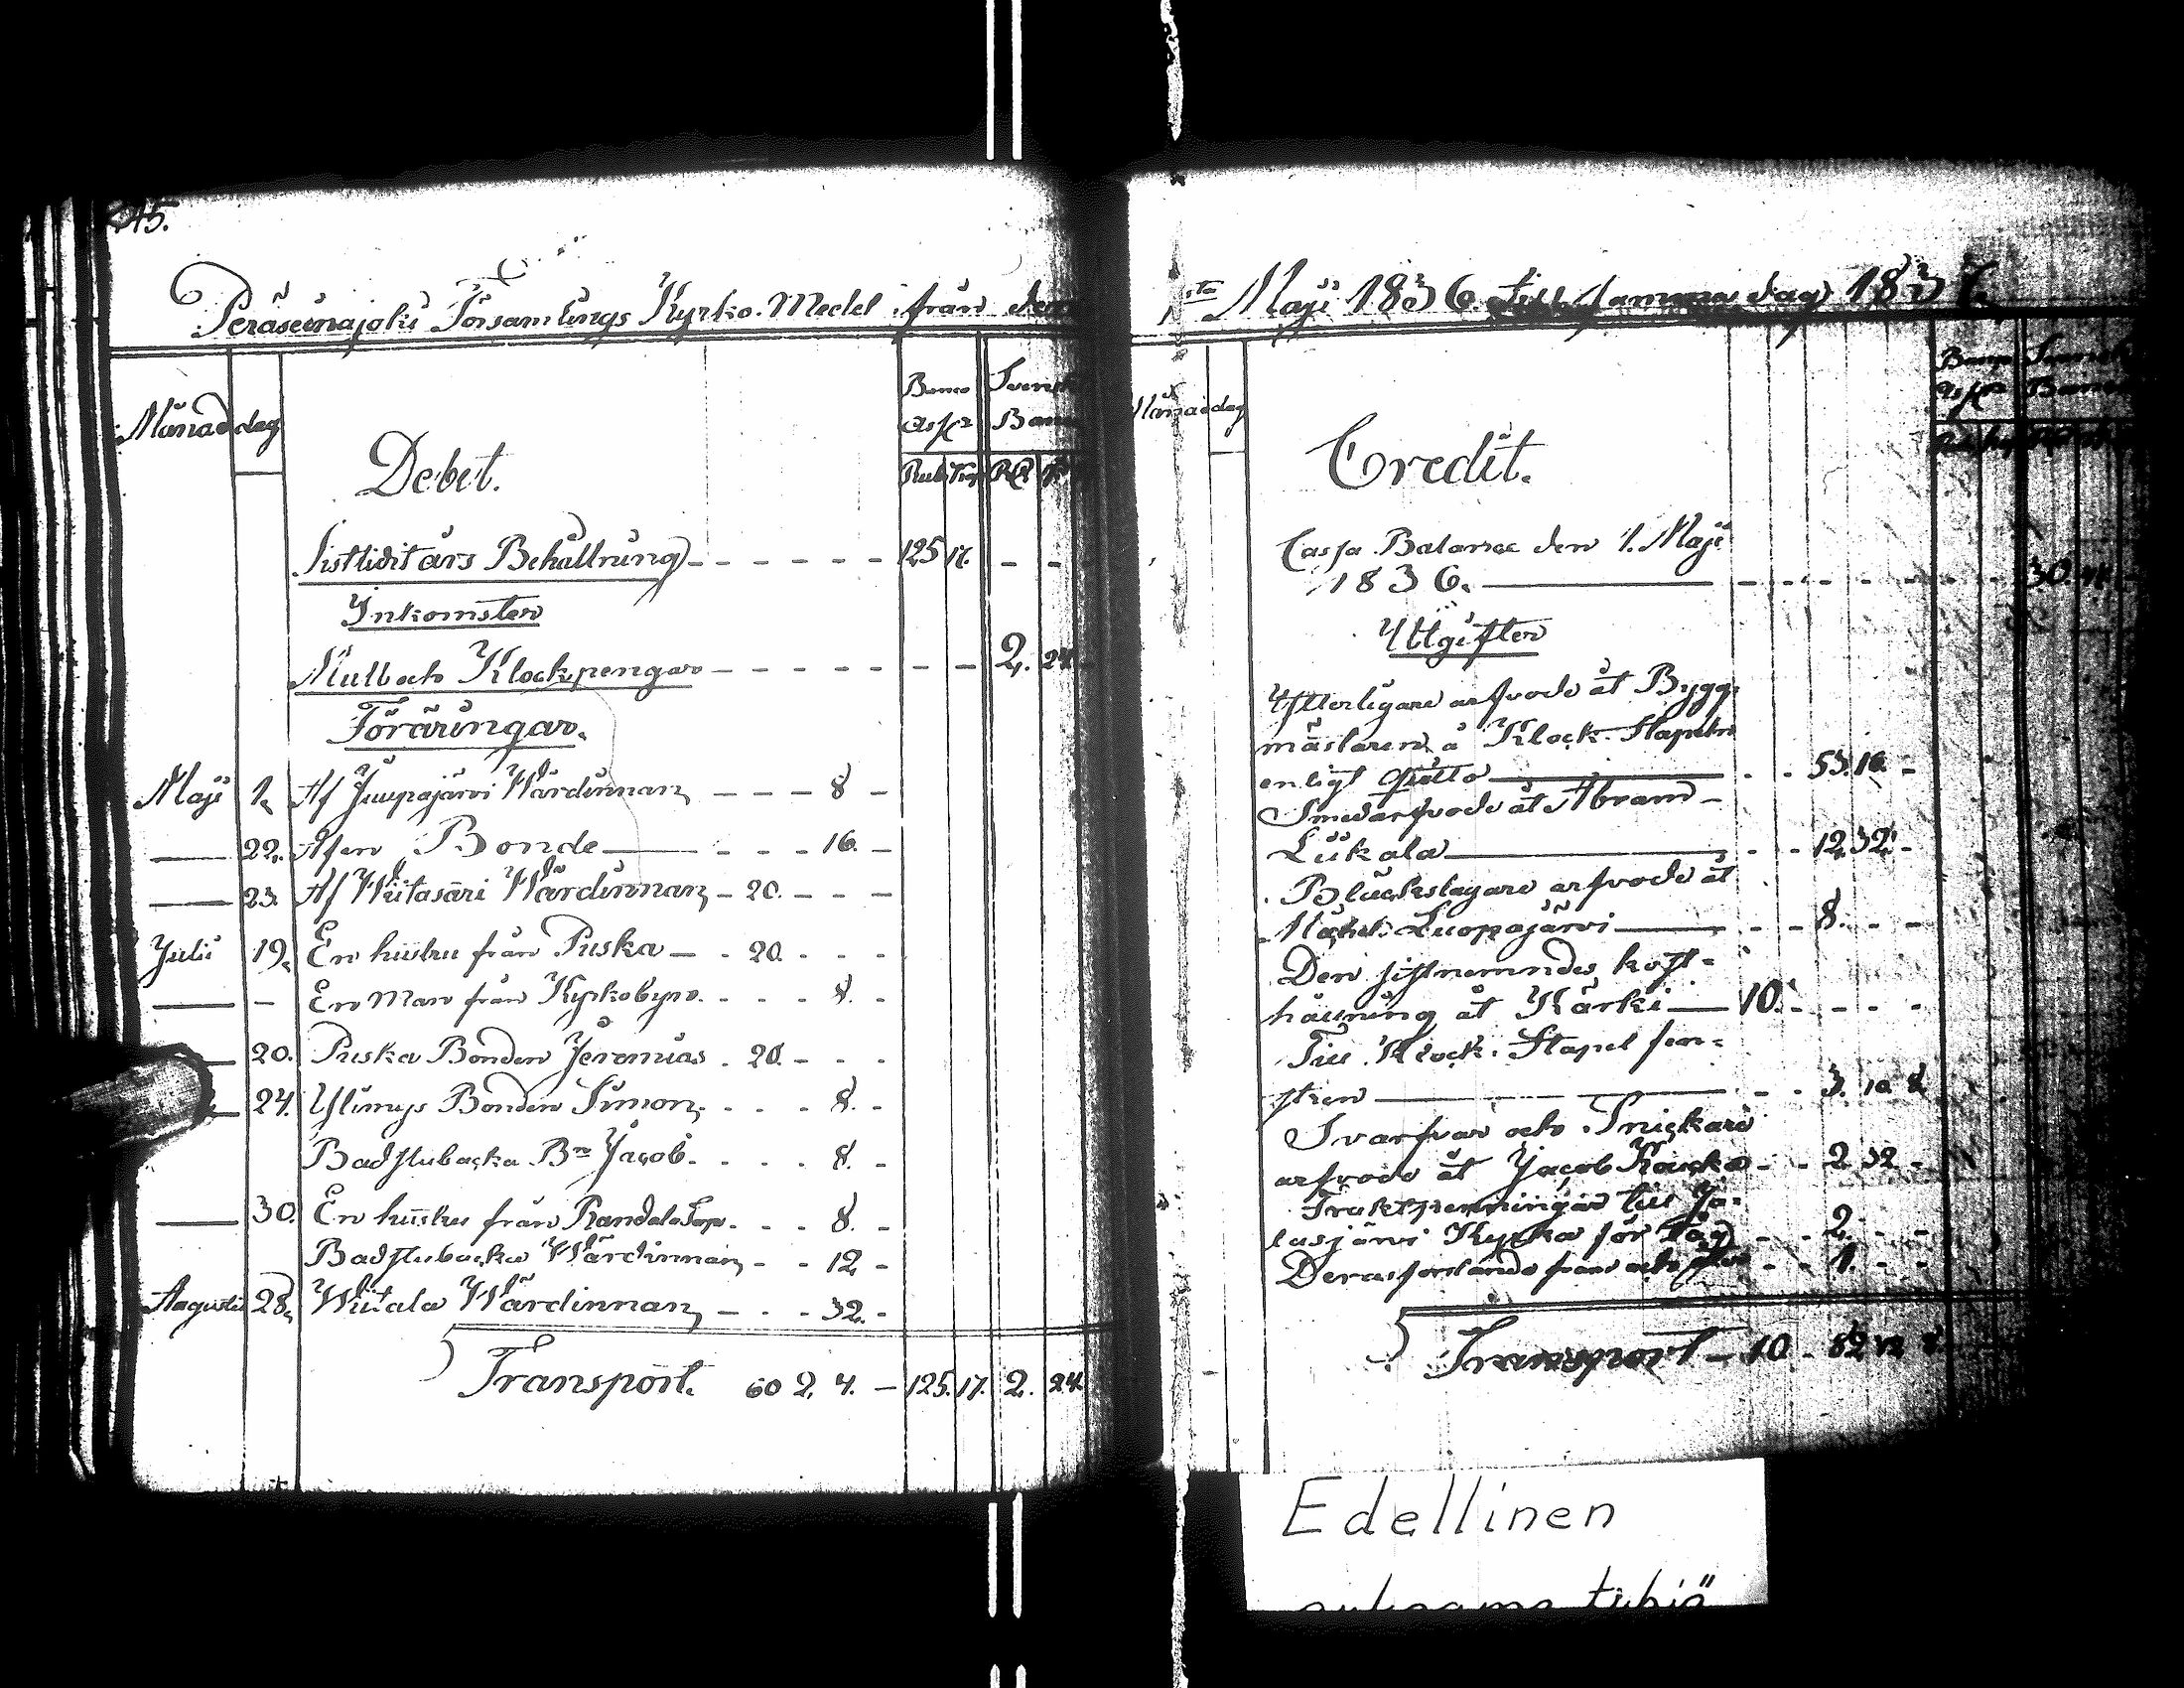 215.
Peräseinajoki Församlings Kyrko-Medel från den
Månad dag
Debet.
Banco Assr Svensk Banco
Rub. Kop. RD
Sistledit års Behållning - - - - - 125 17. - -
Inkomster
Mull och Klockpengar - - - - - - - 2. 24.
Föräringar.
Maji 1. Af Juupajärvi Wärdinnan - - - 8 -
— 22. Af en Bonde — - - - 16. -
— 23. Af Wiitasari Wärdinnan - 20. - - -
Julii 19. En hustru från Piska — - 20. - - -
— - En Man från Kyrkobyn. - - - 8. -
— 20. Piska Bonden Jeremias - 20. - - -
24. Ylinejs Bonden Simon. - - - 8. -
Badstubacka Bn Jacob. - - - 8. -
— 30. En hustru från Randala - - - 8. -
Badstubacka Wärdinnan - - 12 -
Augusti 28. Wiitala Wärdinnan - - - 32. -
Transport. 60 2. 4. - 125. 17. 2. 24.
1sta Maji 1836. till samma dag 183
Månad dag
Banco Assr Svensk Banco
Credit.
Cassa Balance den 1. Maji
1836. — 30.
Utgifter
Ytterligare arfvode åt Bygg-
mästaren å Klock-Stapeln
enligt qvitto — - - 53. 16. -
Smedarfvode åt Abram
Liikala — - - 12. 32. -
Bleckslagare arfvode åt
Michel Luopajärvi — - - 8. - -
Den sistnemndes kost-
hållning åt Kärki — 10. - - - -
Till Klock-Stapel fön-
stren — - - 3. 10 8
Svarfvar och Snickare
arfvode åt Jacob Kauko - - 2 32 -
Fraktpenningar till Ja-
lasjärvi Kyrka för - - 2. - -
Deras forslande från och - - 1. - -
Transport - 10 - 82 42 8
Edellinen
aukeama tyhjä